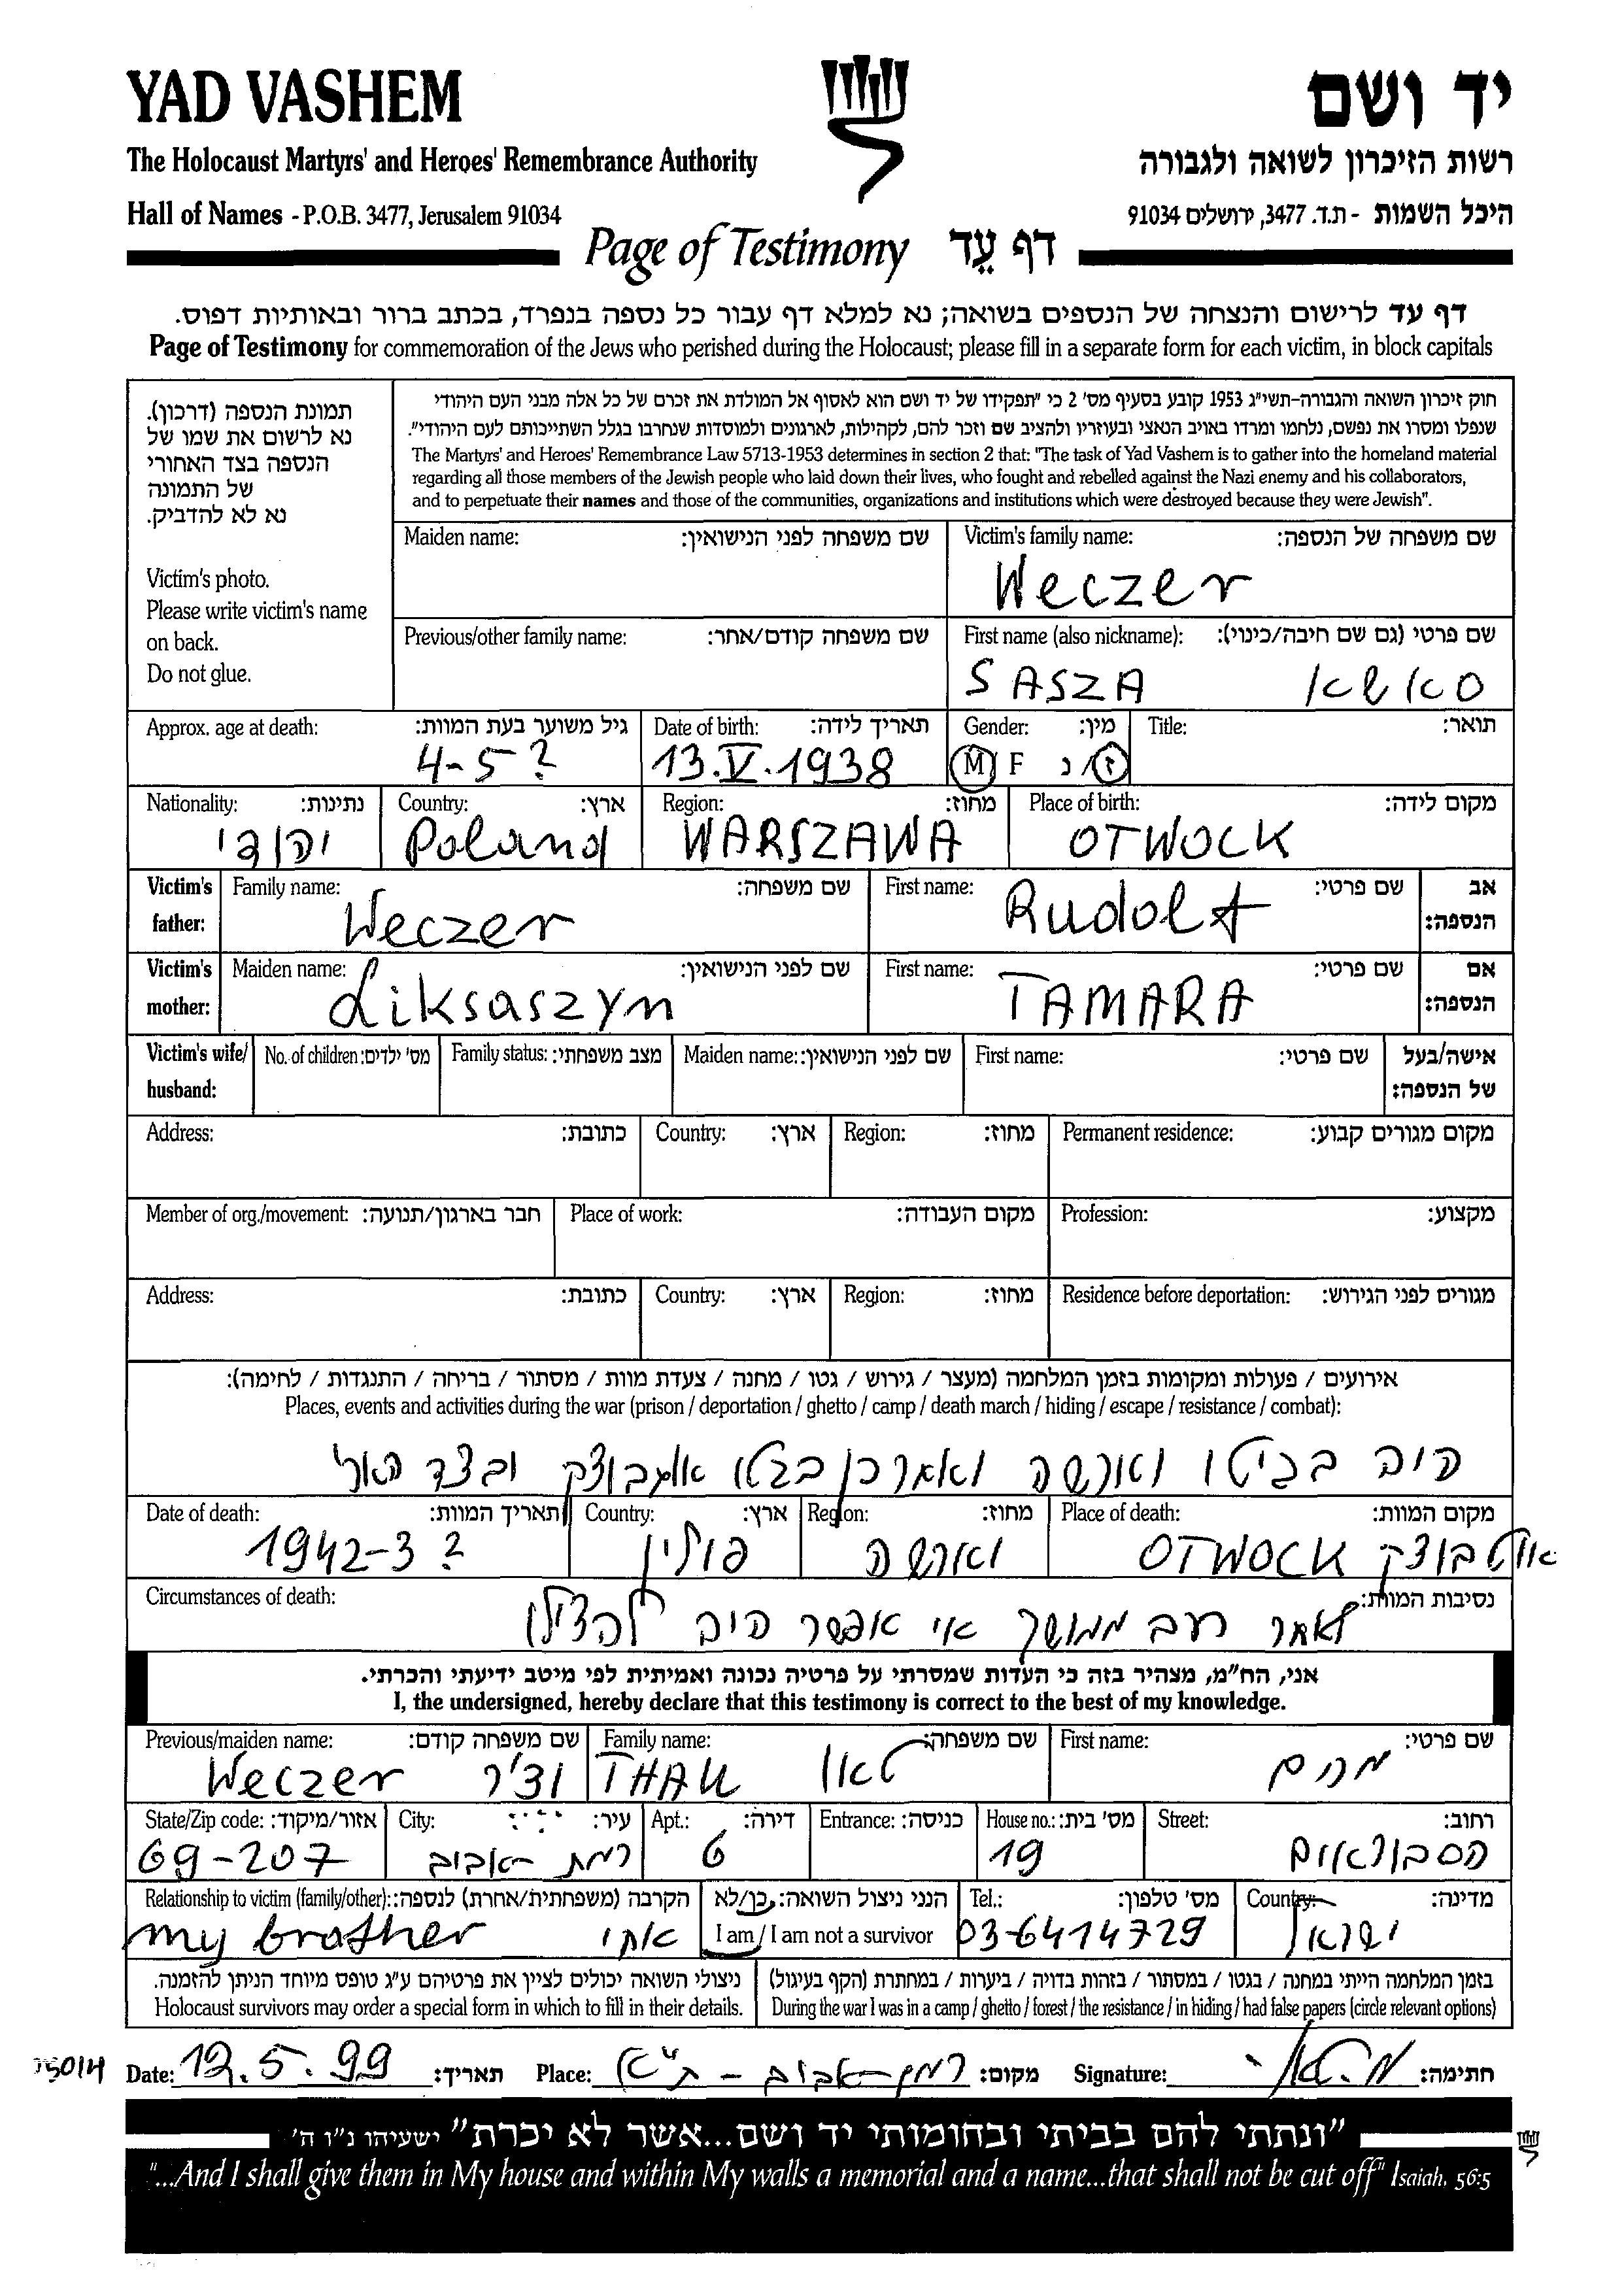 YAD VASHEM
יד ושם
The Holocaust Martyrs' and Heroes' Remembrance Authority
רשות הזיכרון לשואה ולגבורה
Hall of Names - P.O.B. 3477, Jerusalem 91034
היכל השמות - ת.ד. 3477, ירושלים 91034
Page of Testimony דף עֵד
דף עד לרישום והנצחה של הנספים בשואה; נא למלא דף עבור כל נספה בנפרד, בכתב ברור ובאותיות דפוס.
Page of Testimony for commemoration of the Jews who perished during the Holocaust; please fill in a separate form for each victim, in block capitals
תמונת הנספה (דרכון).
נא לרשום את שמו של
הנספה בצד האחורי
של התמונה
נא לא להדביק.
Victim's photo.
Please write victim's name
on back.
Do not glue.
חוק זיכרון השואה והגבורה-תשי"ג 1953 קובע בסעיף מס' 2 כי "תפקידו של יד ושם הוא לאסוף אל המולדת את זכרם של כל אלה מבני העם היהודי
שנפלו ומסרו את נפשם, נלחמו ומרדו באויב הנאצי ובעוזריו ולהציב שם וזכר להם, לקהילות, לארגונים ולמוסדות שנחרבו בגלל השתייכותם לעם היהודי".
The Martyrs' and Heroes' Remembrance Law 5713-1953 determines in section 2 that: "The task of Yad Vashem is to gather into the homeland material
regarding all those members of the Jewish people who laid down their lives, who fought and rebelled against the Nazi enemy and his collaborators,
and to perpetuate their names and those of the communities, organizations and institutions which were destroyed because they were Jewish".
Maiden name: שם משפחה לפני הנישואין:
Victim's family name: שם משפחה של הנספה:
Weczer
Previous/other family name: שם משפחה קודם/אחר:
First name (also nickname): שם פרטי (גם שם חיבה/כינוי):
SASZA סאשא
Approx. age at death: גיל משוער בעת המוות:
4-5?
Date of birth: תאריך לידה:
13.V.1938
Gender: מין:
M F ז/נ
Title: תואר:
Nationality: נתינות:
יהודי
Country: ארץ:
Poland
Region: מחוז:
WARSZAWA
Place of birth: מקום לידה:
OTWOCK
Victim's father: Family name: שם משפחה:
Weczer
First name: שם פרטי: אב הנספה:
Rudolf
Victim's mother: Maiden name: שם לפני הנישואין:
Liksaszyn
First name: שם פרטי: אם הנספה:
TAMARA
Victim's wife/husband: No. of children: מס' ילדים: Family status: מצב משפחתי: Maiden name: שם לפני הנישואין: First name: שם פרטי: אישה/בעל של הנספה:
Address: כתובת: Country: ארץ: Region: מחוז: Permanent residence: מקום מגורים קבוע:
Member of org./movement: חבר בארגון/תנועה: Place of work: מקום העבודה: Profession: מקצוע:
Address: כתובת: Country: ארץ: Region: מחוז: Residence before deportation: מגורים לפני הגירוש:
אירועים / פעולות ומקומות בזמן המלחמה (מעצר / גירוש / גטו / מחנה / צעדת מוות / מסתור / בריחה / התנגדות / לחימה):
Places, events and activities during the war (prison / deportation / ghetto / camp / death march / hiding / escape / resistance / combat):
היה בגיטו ווארשה ואחר כן בגטו אוטבוצק ובצד הארי
Date of death: תאריך המוות:
1942-3?
Country: ארץ:
פולין
Region: מחוז:
ווארשה
Place of death: מקום המוות:
OTWOCK אוטבוצק
Circumstances of death: נסיבות המוות:
לאחר רעב ממושך אי אפשר היה להצילו
אני, הח"מ, מצהיר בזה כי העדות שמסרתי על פרטיה נכונה ואמיתית לפי מיטב ידיעתי והכרתי.
I, the undersigned, hereby declare that this testimony is correct to the best of my knowledge.
Previous/maiden name: שם משפחה קודם:
Weczer וצ'ר
Family name: שם משפחה:
THAU טאו
First name: שם פרטי:
מרים
State/Zip code: אזור/מיקוד:
69-207
City: עיר:
רמת-אביב
Apt.: דירה:
6
Entrance: כניסה:
House no.: מס' בית:
19
Street: רחוב:
הסבוראים
Relationship to victim (family/other): הקרבה (משפחתית/אחרת) לנספה:
my brother אחי
הנני ניצול השואה: כן/לא
I am / I am not a survivor
Tel.: מס' טלפון:
03-6414729
Country: מדינה:
ישראל
ניצולי השואה יכולים לציין את פרטיהם ע"ג טופס מיוחד הניתן להזמנה.
Holocaust survivors may order a special form in which to fill in their details.
בזמן המלחמה הייתי במחנה / בגטו / במסתור / בזהות בדויה / ביערות / במחתרת (הקף בעיגול)
During the war I was in a camp / ghetto / forest / the resistance / in hiding / had false papers (circle relevant options)
Date: 12.5.99 תאריך:
Place: רמת-אביב - ת"א מקום:
Signature: חתימה:
"ונתתי להם בביתי ובחומותי יד ושם...אשר לא יכרת" ישעיהו נ"ו ה'
"...And I shall give them in My house and within My walls a memorial and a name...that shall not be cut off" Isaiah, 56:5